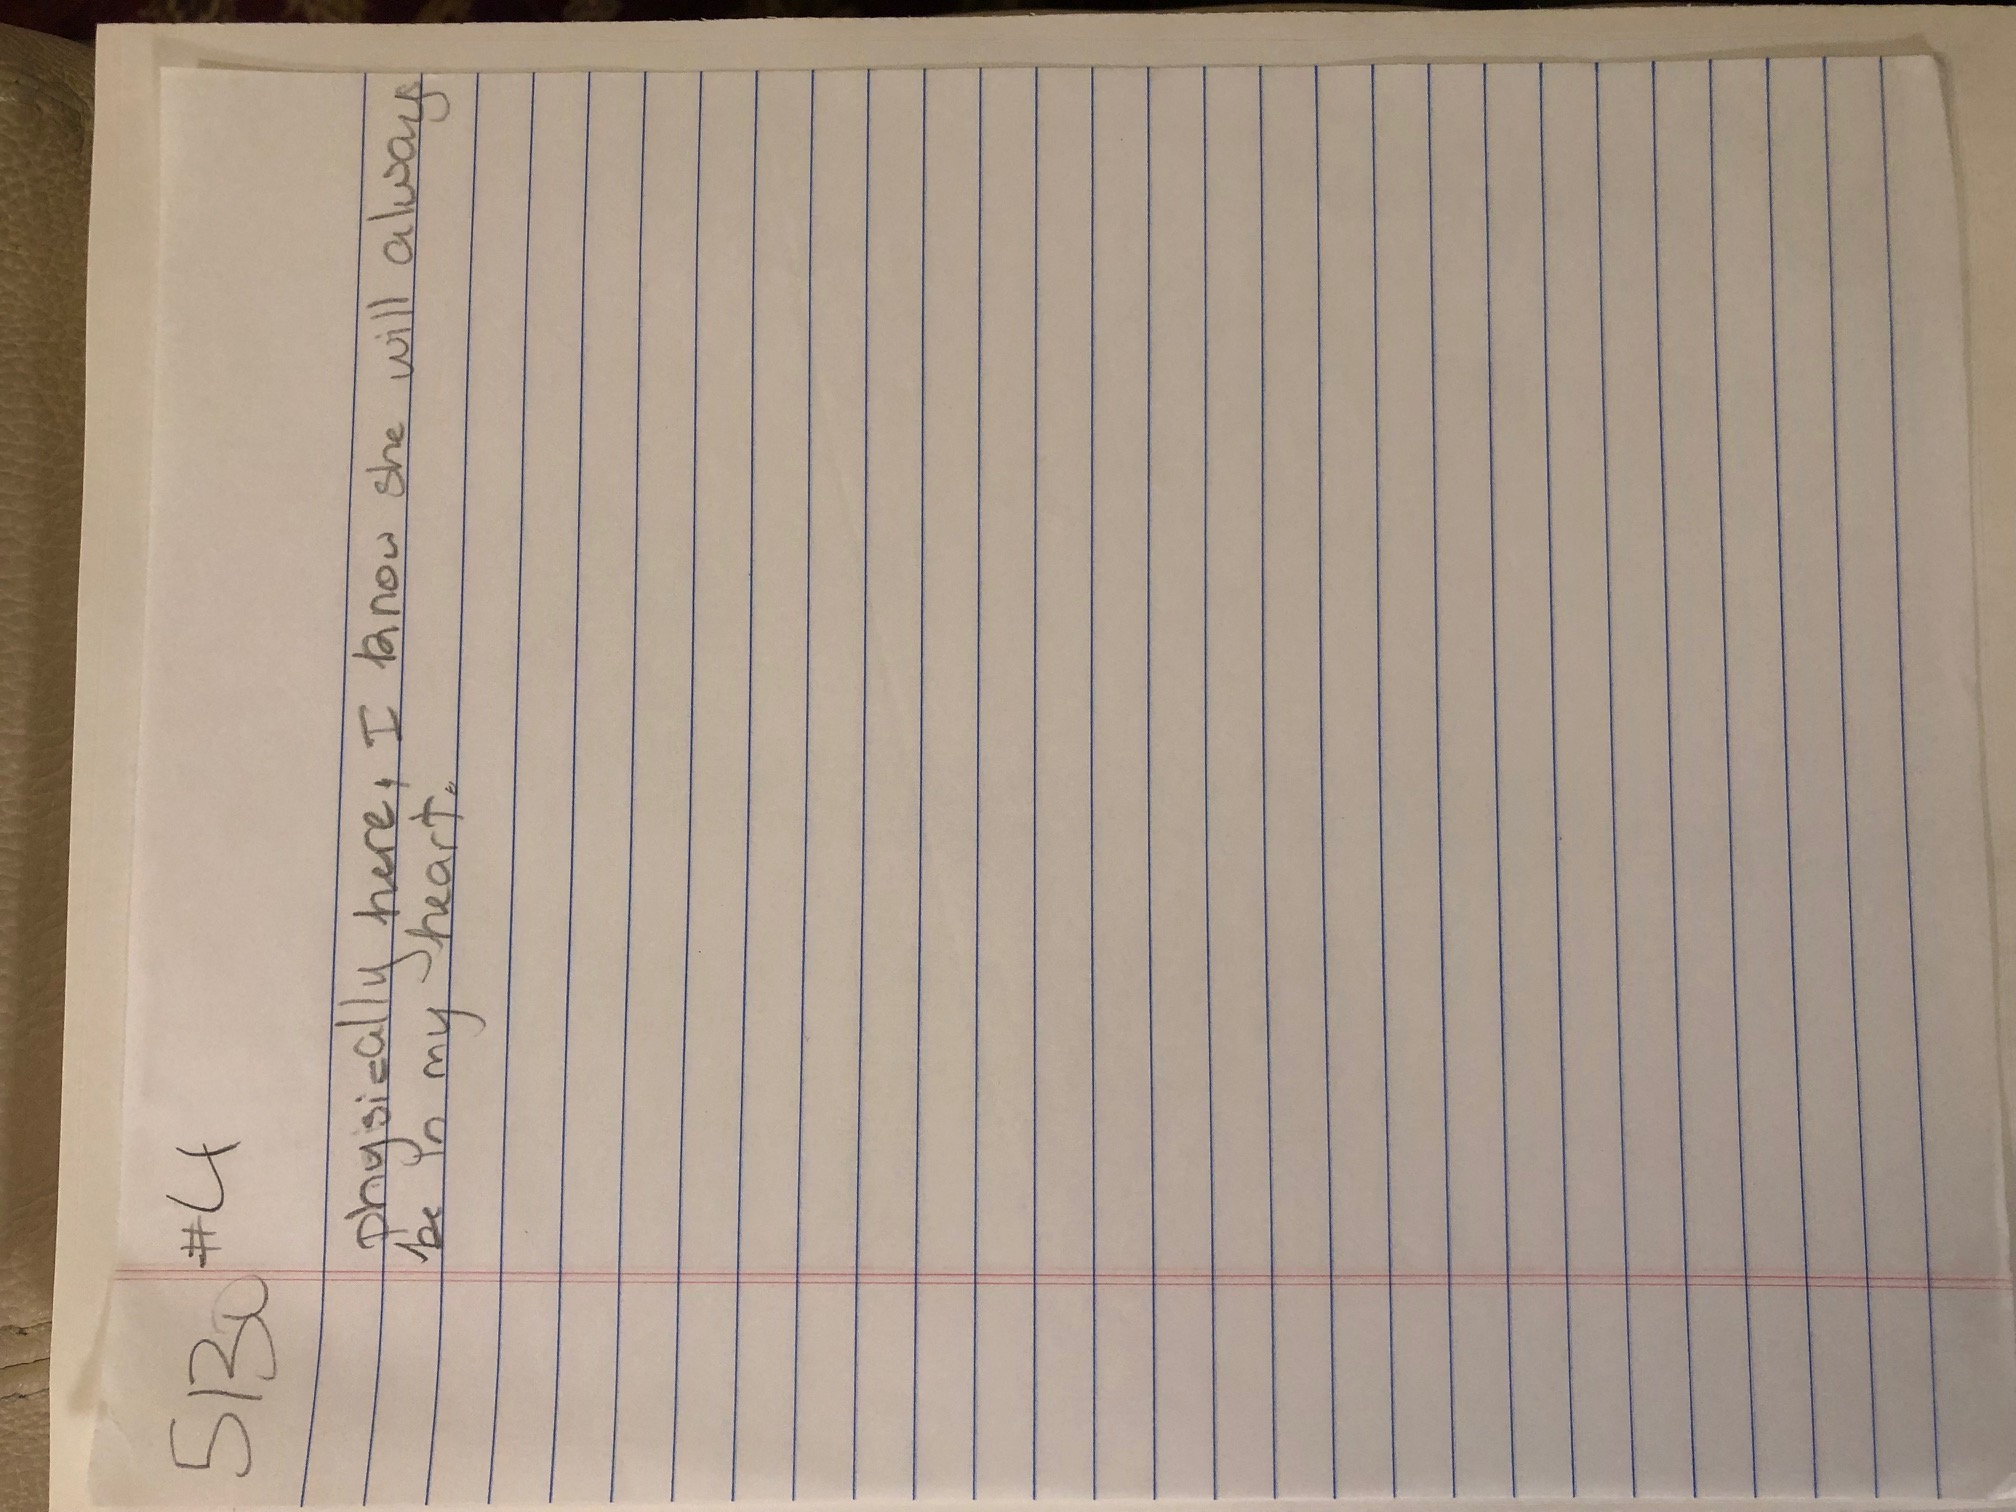 5130 #4
physically here, I know she will always
be in my heart.